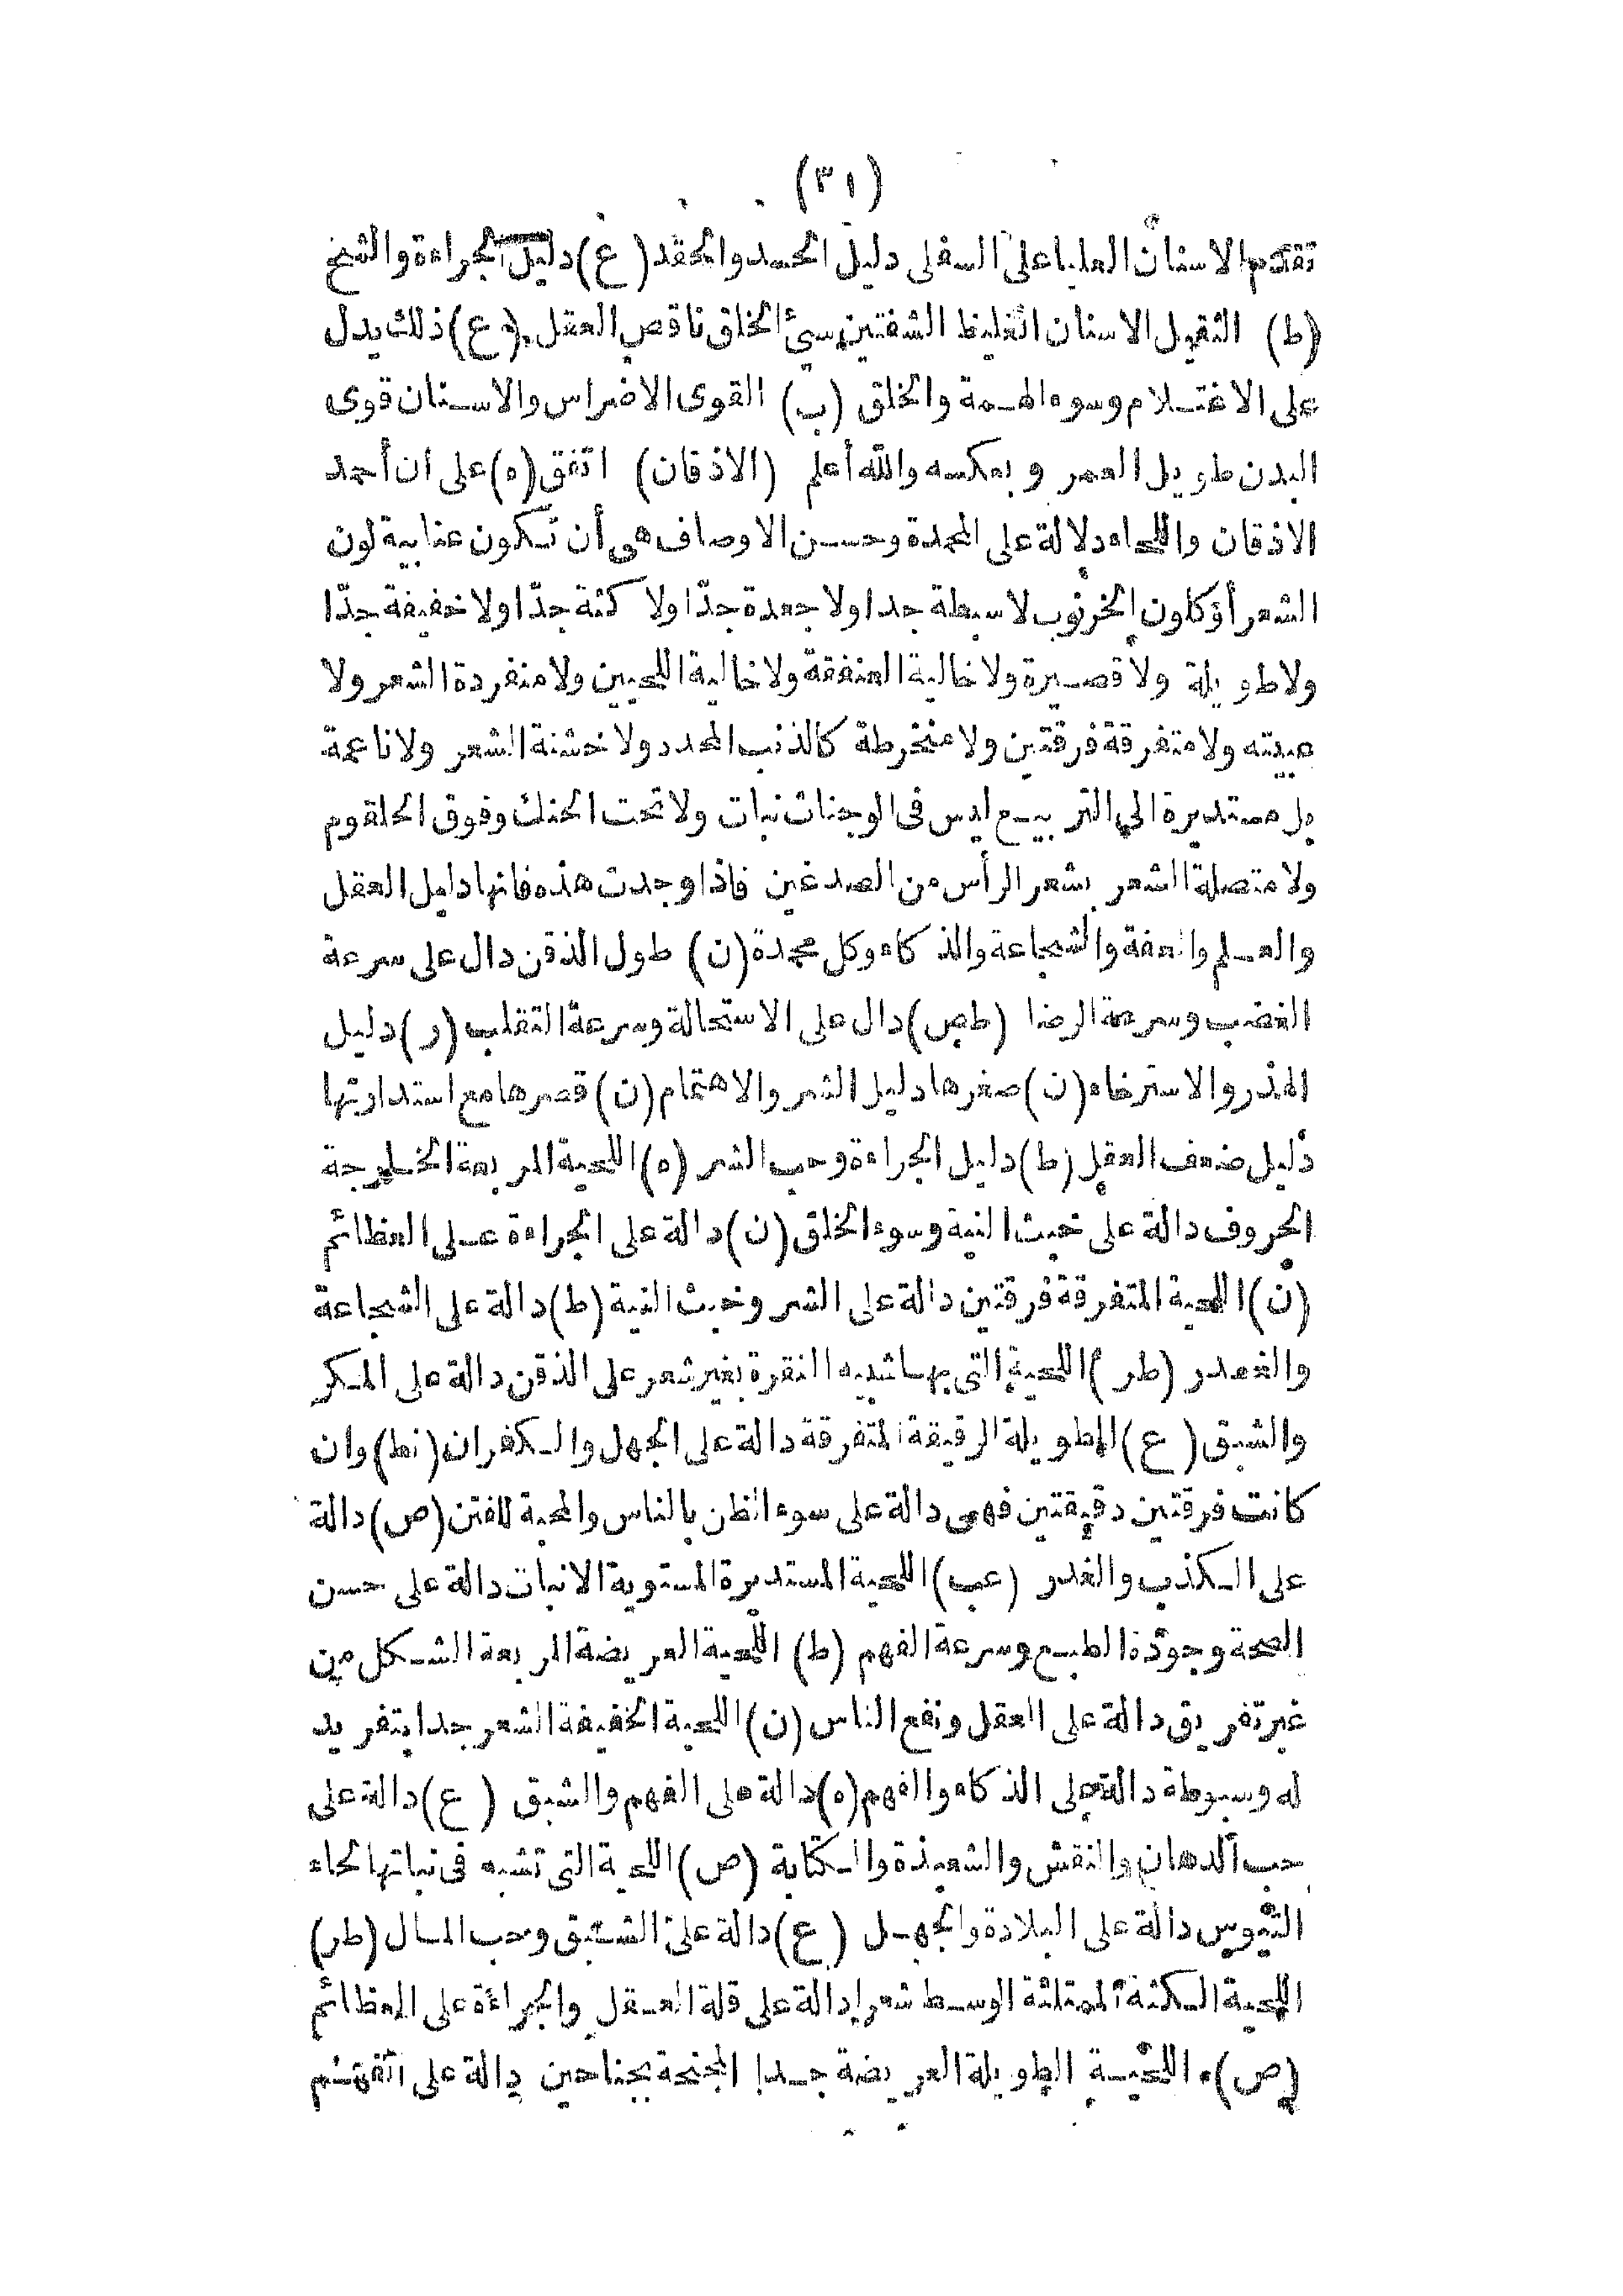 (٣١)
تقدم الاسنان العليا على السفلى دليل الحسد والحقد (ع) دليل الجراءة والشبخ
(ط) الثقيل الاسنان الغليظ الشفتين سيئ الخلق ناقص العقل (وع) ذلك يدل
على الاغتلام وسوء الهمة والخلق (ب) القوى الاضراس والاسنان قوى
البدن طويل العمر وبعكسه والله أعلم (الاذقان) اتفق (ه) على ان أحمد
الاذقان واللحاء دلالة على المحمدة وحسن الاوصاف هى أن تكون عنابية لون
الشعر أو كلون الخرنوب لا سبطة جدا ولا جعدة جدّا ولا كثة جدّا ولا خفيفة جدّا
ولا طويلة ولا قصيرة ولا خالية العنفقة ولا خالية اللحيين ولا منفردة الشعر ولا
ولا متفرقة فرقتين ولا منخرطة كالذنب المحدد ولا خشنة الشعر ولا ناعمة
بل مستديرة الى التربيع ليس فى الوجنات نبات ولا تحت الحنك وفوق الحلقوم
ولا متصلة الشعر بشعر الرأس من الصدغين فاذا وجدت هذه فانها دليل العقل
والعلم والعفة والشجاعة والذكاء وكل محمدة (ن) طول الذقن دال على سرعة
الغضب وسرعة الرضا (طص) دال على الاستحالة وسرعة التقلب (ر) دليل
الهذر والاسترخاء (ن) صغرها دليل الشر والاهتمام (ن) قصرها مع استدارتها
دليل ضعف العقل (ط) دليل الجراءة وحب الشر (ه) اللحية المربعة الخارجة
الحروف دالة على خبث النية وسوء الخلق (ن) دالة على الجراءة على العظائم
(ن) اللحية المتفرقة فرقتين دالة على الشر وخبث النية (ط) دالة على الشجاعة
والغدر (طر) اللحية التى بها شبيه النقرة بغير شعر على الذقن دالة على المكر
والشبق (ع) الطويلة الرقيقة المتفرقة دالة على الجهل والكفران (نط) وان
كانت فرقتين دقيقتين فهى دالة على سوء الظن بالناس والمحبة للفتن (ص) دالة
على الكذب والغدر (عب) اللحية المستديرة المستوية الانبات دالة على حسن
الصحة وجودة الطبع وسرعة الفهم (ط) اللحية العريضة المربعة الشكل من
غير تفريق دالة على العقل ونفع الناس (ن) اللحية الخفيفة الشعر جدا بتفريد
له وسبوطة دالة على الذكاء والفهم (ه) دالة على الفهم والشبق (ع) دالة على
حب الدهان والنقش والشعبذة والكتابة (ص) اللحية التى تشبه فى نباتها لحاء
التيوس دالة على البلادة والجهل (ع) دالة على الشبق وحب المال (طر)
اللحية الكثة الممتلئة الوسط شعرا دالة على قلة العقل والجراءة على العظائم
(ص) اللحية الطويلة العريضة جدا المجنحة بجناحين دالة على